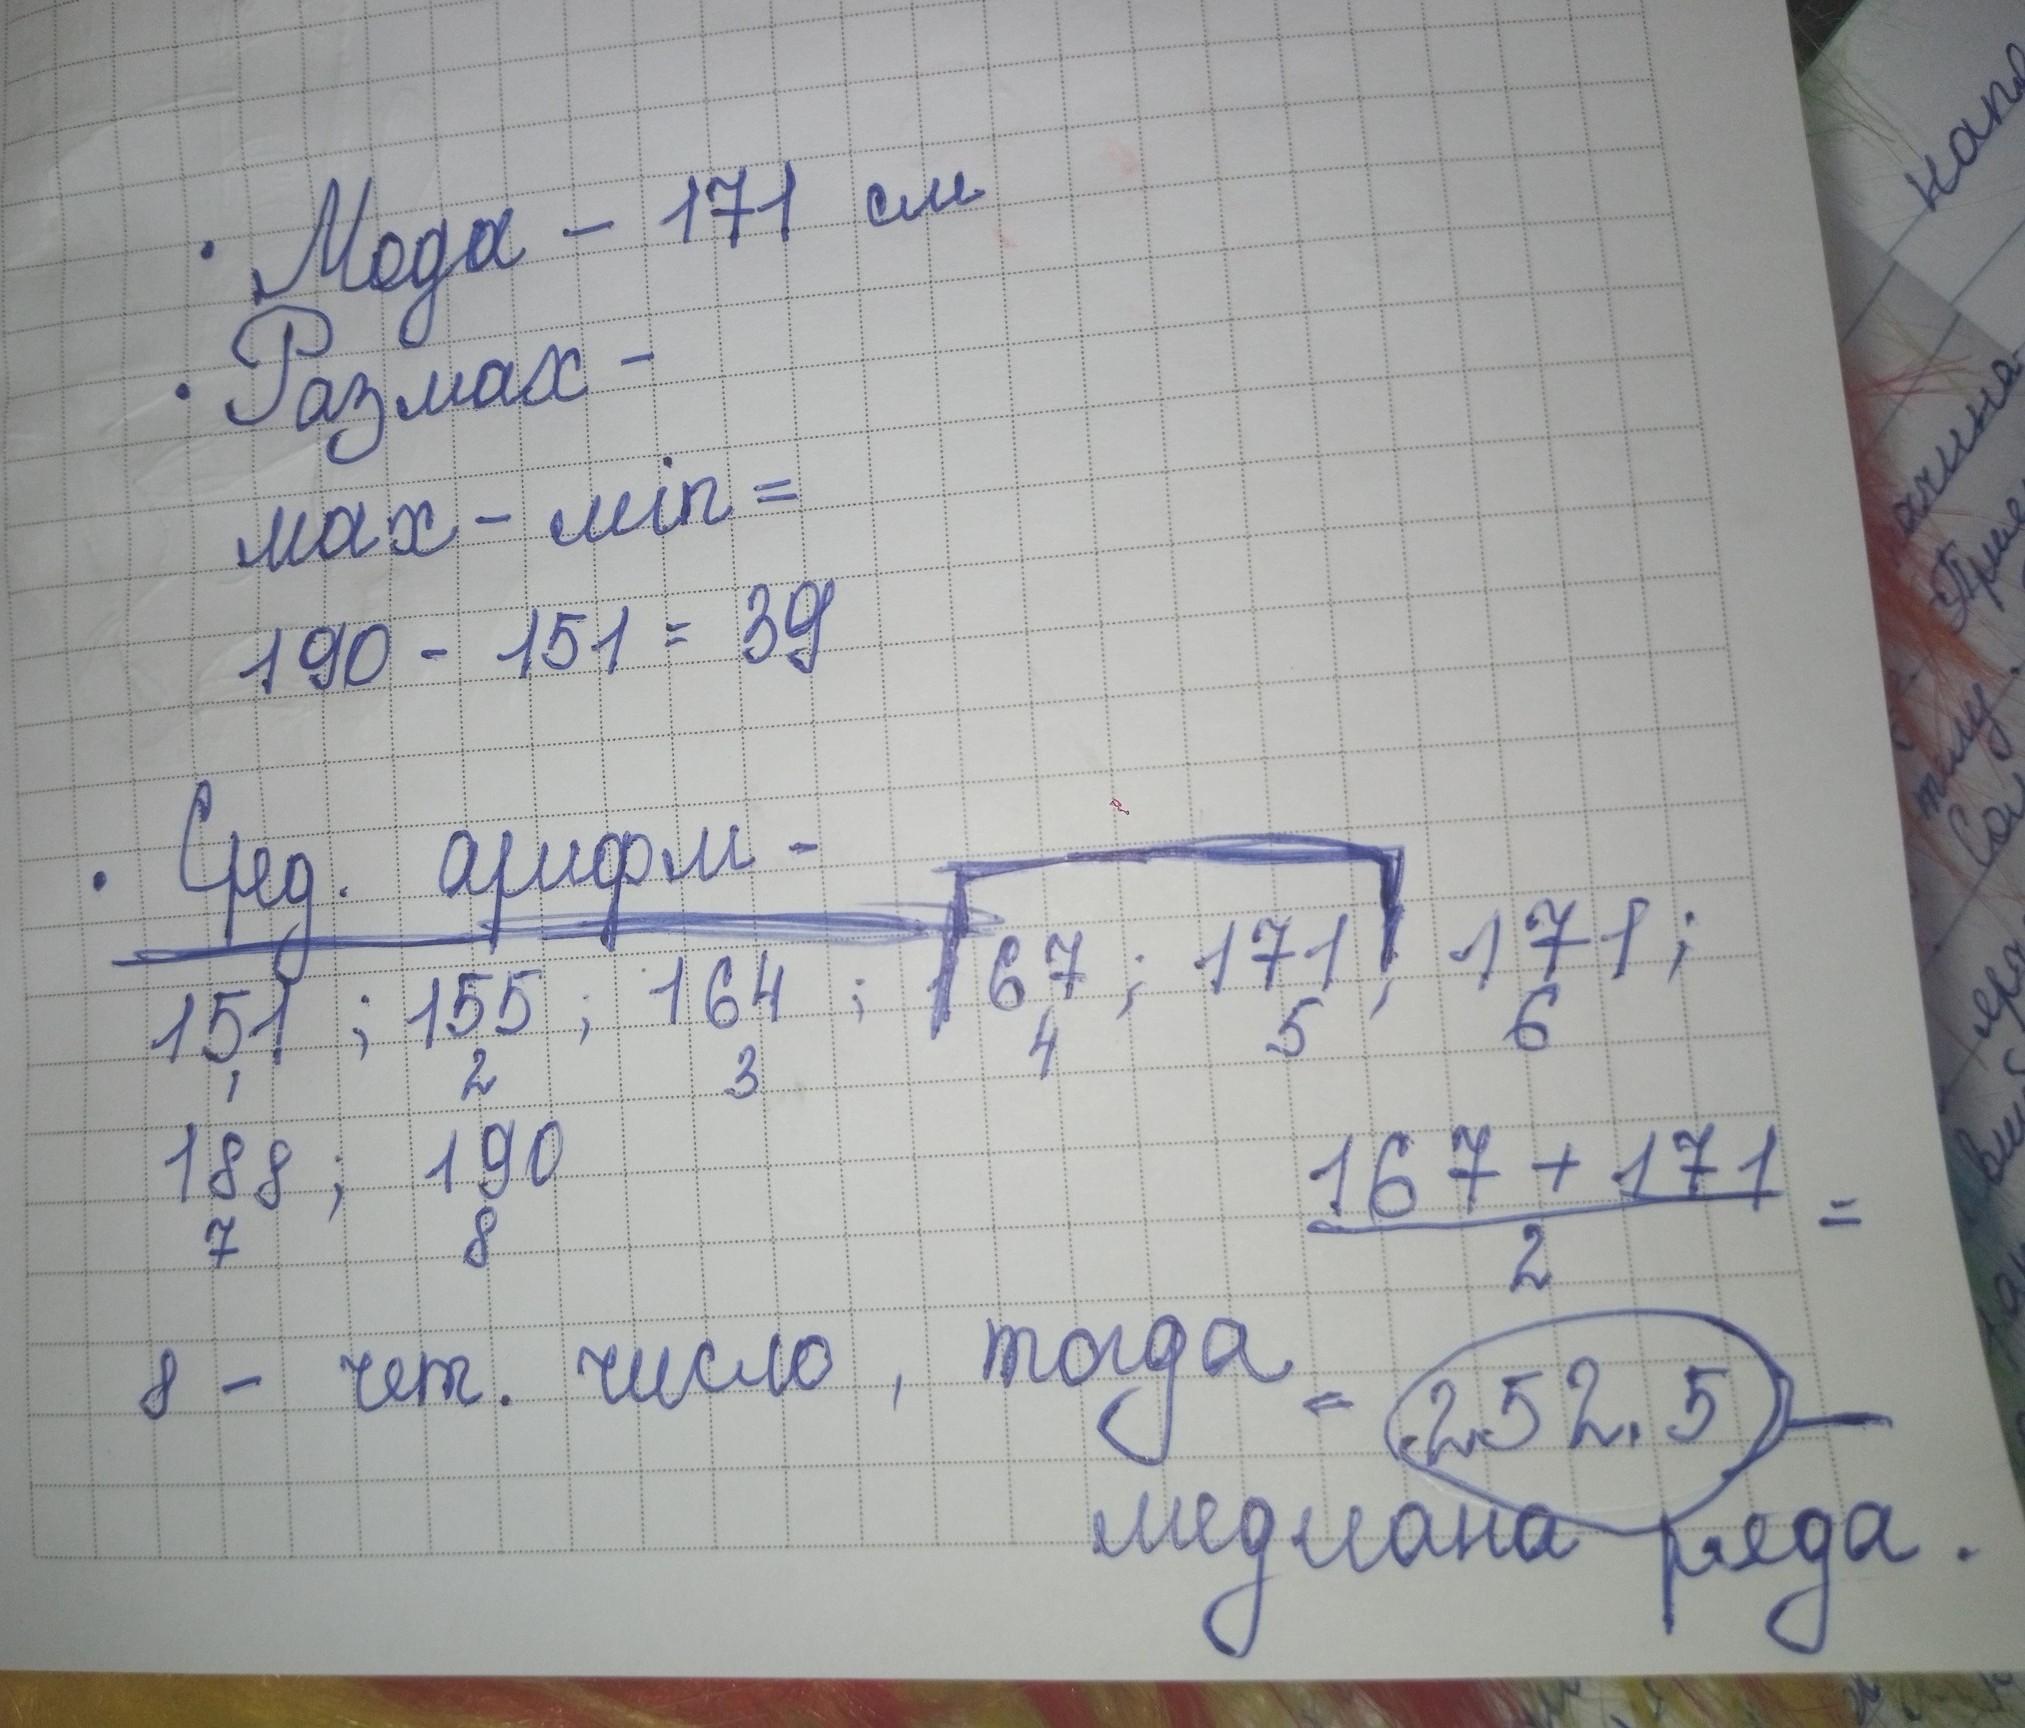 · Мода – 171 см
· Размах –
мах – мin =
190 – 151 = 39
· Сред. арифм –
151 ; 155 ; 164 ; 167 ; 171 ; 171 ;
1 2 3 4 5 6
188 ; 190
7 8
167 + 171
2
=
8 – чет. число , тогда = 252.5 –
медиана ряда .
нап